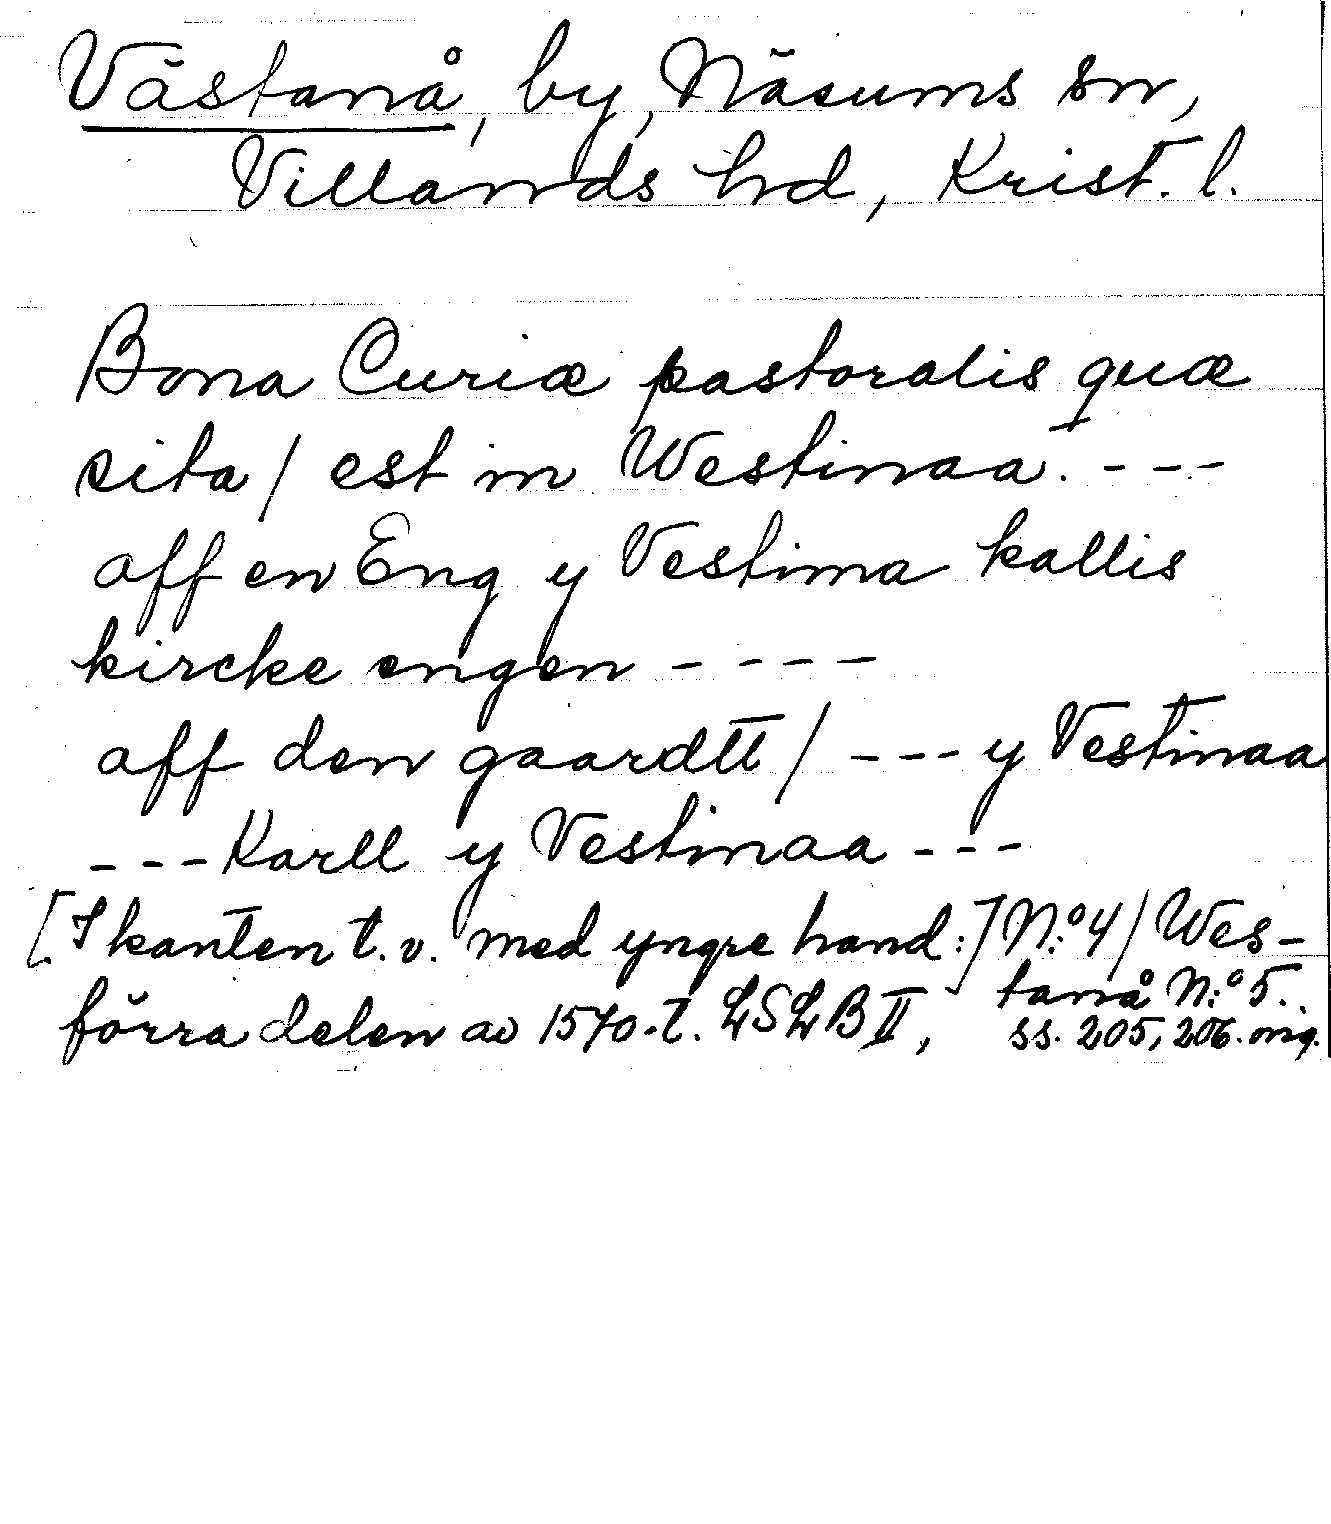 Västanå, by, Näsums sn,
Villands hd, Krist. l.
Bona Curiæ pastoralis quæ
sita / est in Westinaa. - - -
aff en Eng y Vestima kallis
kircke engen - - - -
aff den gaardtt / - - - y Vestinaa
- - - Karll y Vestinaa - - -
[I kanten t. v. med yngre hand:] N:o 4 / Wes-
tanå N:o 5.
förra delen av 1570-t. LSLB II, ss. 205, 206. orig.